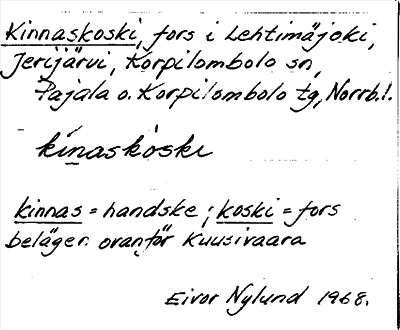 Kinnaskoski, fors i Lehtimäjoki,
Jerijärvi, Korpilombolo sn,
Pajala o. Korpilombolo tg, Norrb.l.
kinaskoski
kinnas = handske ; koski = fors
beläget ovanför Kuusivaara
Eivor Nylund 1968.